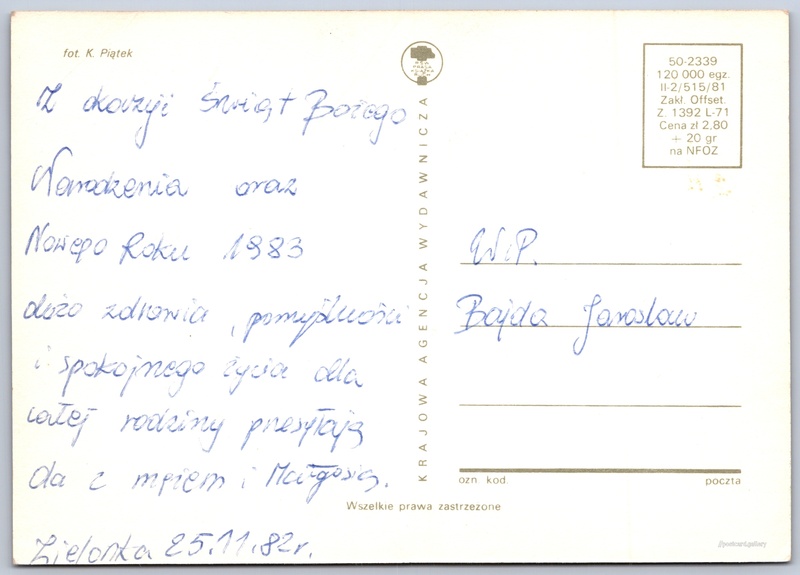 fot. K. Piątek
Z okazji Świąt Bożego
Narodzenia oraz
Nowego Roku 1983
dużo zdrowia, pomyślności
i spokojnego życia dla
całej rodziny przesyłają
da z mężem i Małgosią.
Zielonka 25.11.82r.
KRAJOWA AGENCJA WYDAWNICZA
50-2339
120 000 egz.
II-2/515/81
Zakł. Offset.
Z. 1392 L-71
Cena zł 2,80
+ 20 gr
na NFOZ
W.P.
Bajda Jarosław
ozn kod
poczta
Wszelkie prawa zastrzeżone
//postcard.gallery